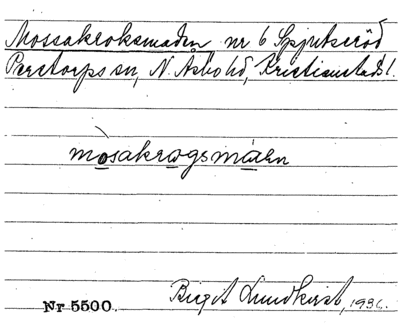 Mossakroksmaden nr 6 Spjutseröd
Perstorps sn, N. Åsbo hd, Kristianstads l.
mòsakrogsmáen
Birgit Lundkvist, 1936.
Nr 5500.